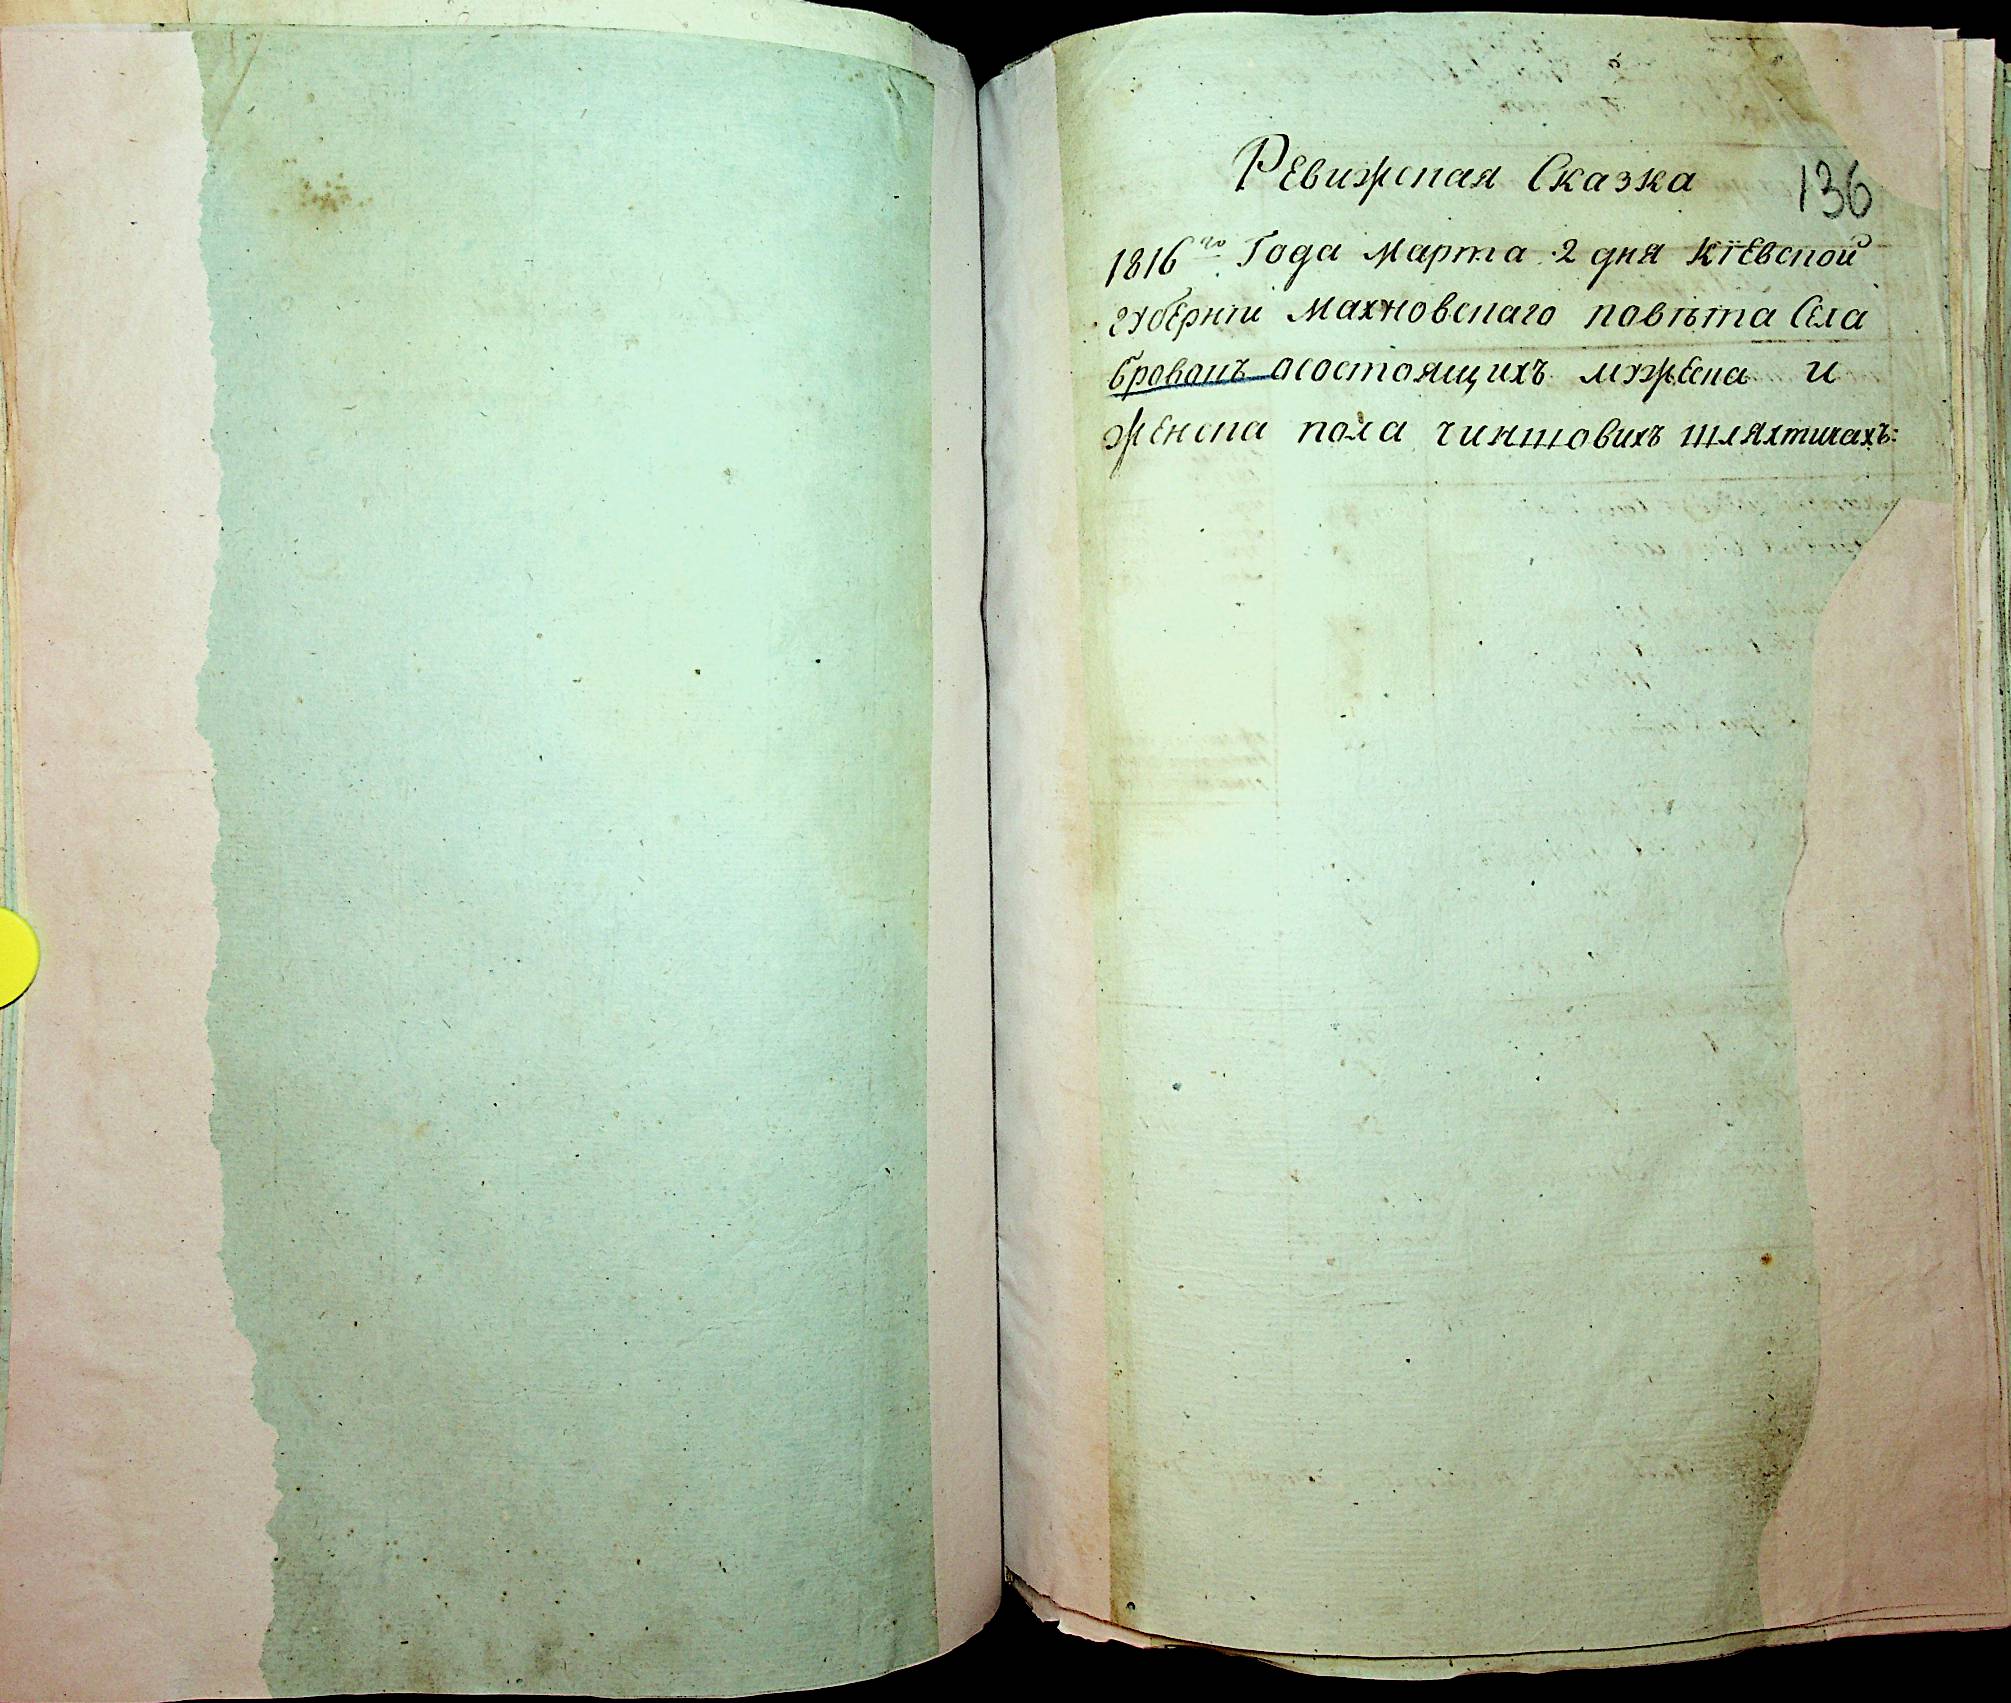 Ревижская Сказка
136
1816го Года марта 2 дня Кіевской
губерніи Махновскаго повѣта Села
Бровокъ осостоящихъ мужеска и
женска пола чиншовихъ шляхтичахъ: